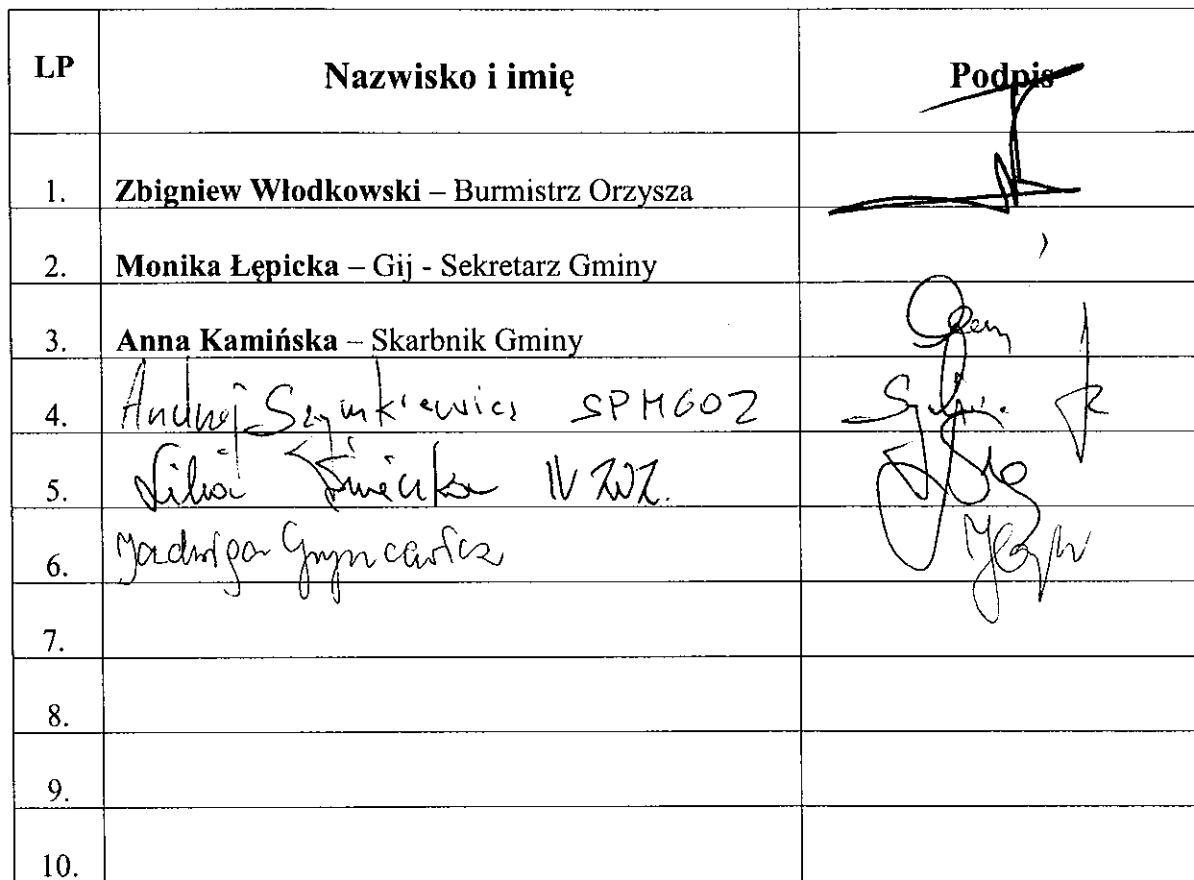 LP Nazwisko i imię Podpis
1. Zbigniew Włodkowski – Burmistrz Orzysza
2. Monika Łępicka – Gij - Sekretarz Gminy
3. Anna Kamińska – Skarbnik Gminy
4. Andrzej Szymkiewicz SPMGOZ
5.
6. Jadwiga Gryncewicz
7.
8.
9.
10.